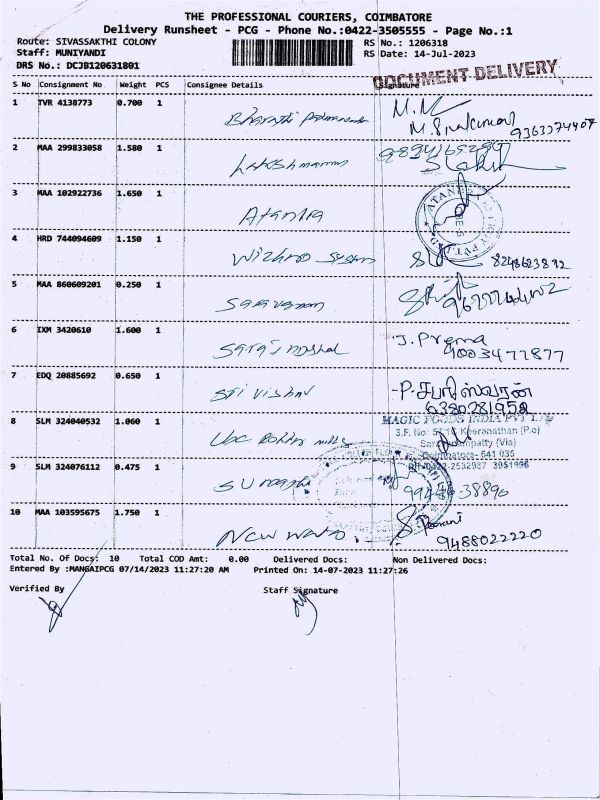 THE PROFESSIONAL COURIERS, COIMBATORE
Delivery Runsheet - PCG - Phone No.:0422-3505555 - Page No.:1
Route: SIVASSAKTHI COLONY RS No.: 1206318
Staff: MUNIYANDI RS Date: 14-Jul-2023
DRS No.: DCJB120631801
DOCUMENT DELIVERY
S No Consignment No Weight PCS Consignee Details Signature
1 TVR 4138773 0.700 1 Bharathi
M. Sivakumar
9363374407
2 MAA 299833058 1.580 1 Lakshmanan
3 MAA 102922736 1.650 1 Atantra
4 HRD 744094609 1.150 1 8248623892
5 MAA 860609201 0.250 1 Saravanan
6 IXM 3420610 1.600 1 J. Prema
9003477877
7 EDQ 20885692 0.650 1 Sri Vishnu P. சபரிஸ்வரன்
6380281952
8 SLM 324040532 1.060 1
MAGIC FOODS INDIA PVT LTD
3.F. No: Keeranatham (P.o)
(Via)
Coimbatore- 641 035
9 SLM 324076112 0.475 1
10 MAA 103595675 1.750 1 New
9488022220
Total No. Of Docs: 10 Total COD Amt: 0.00 Delivered Docs: Non Delivered Docs:
Entered By :MANGAIPCG 07/14/2023 11:27:20 AM Printed On: 14-07-2023 11:27:26
Verified By Staff Signature